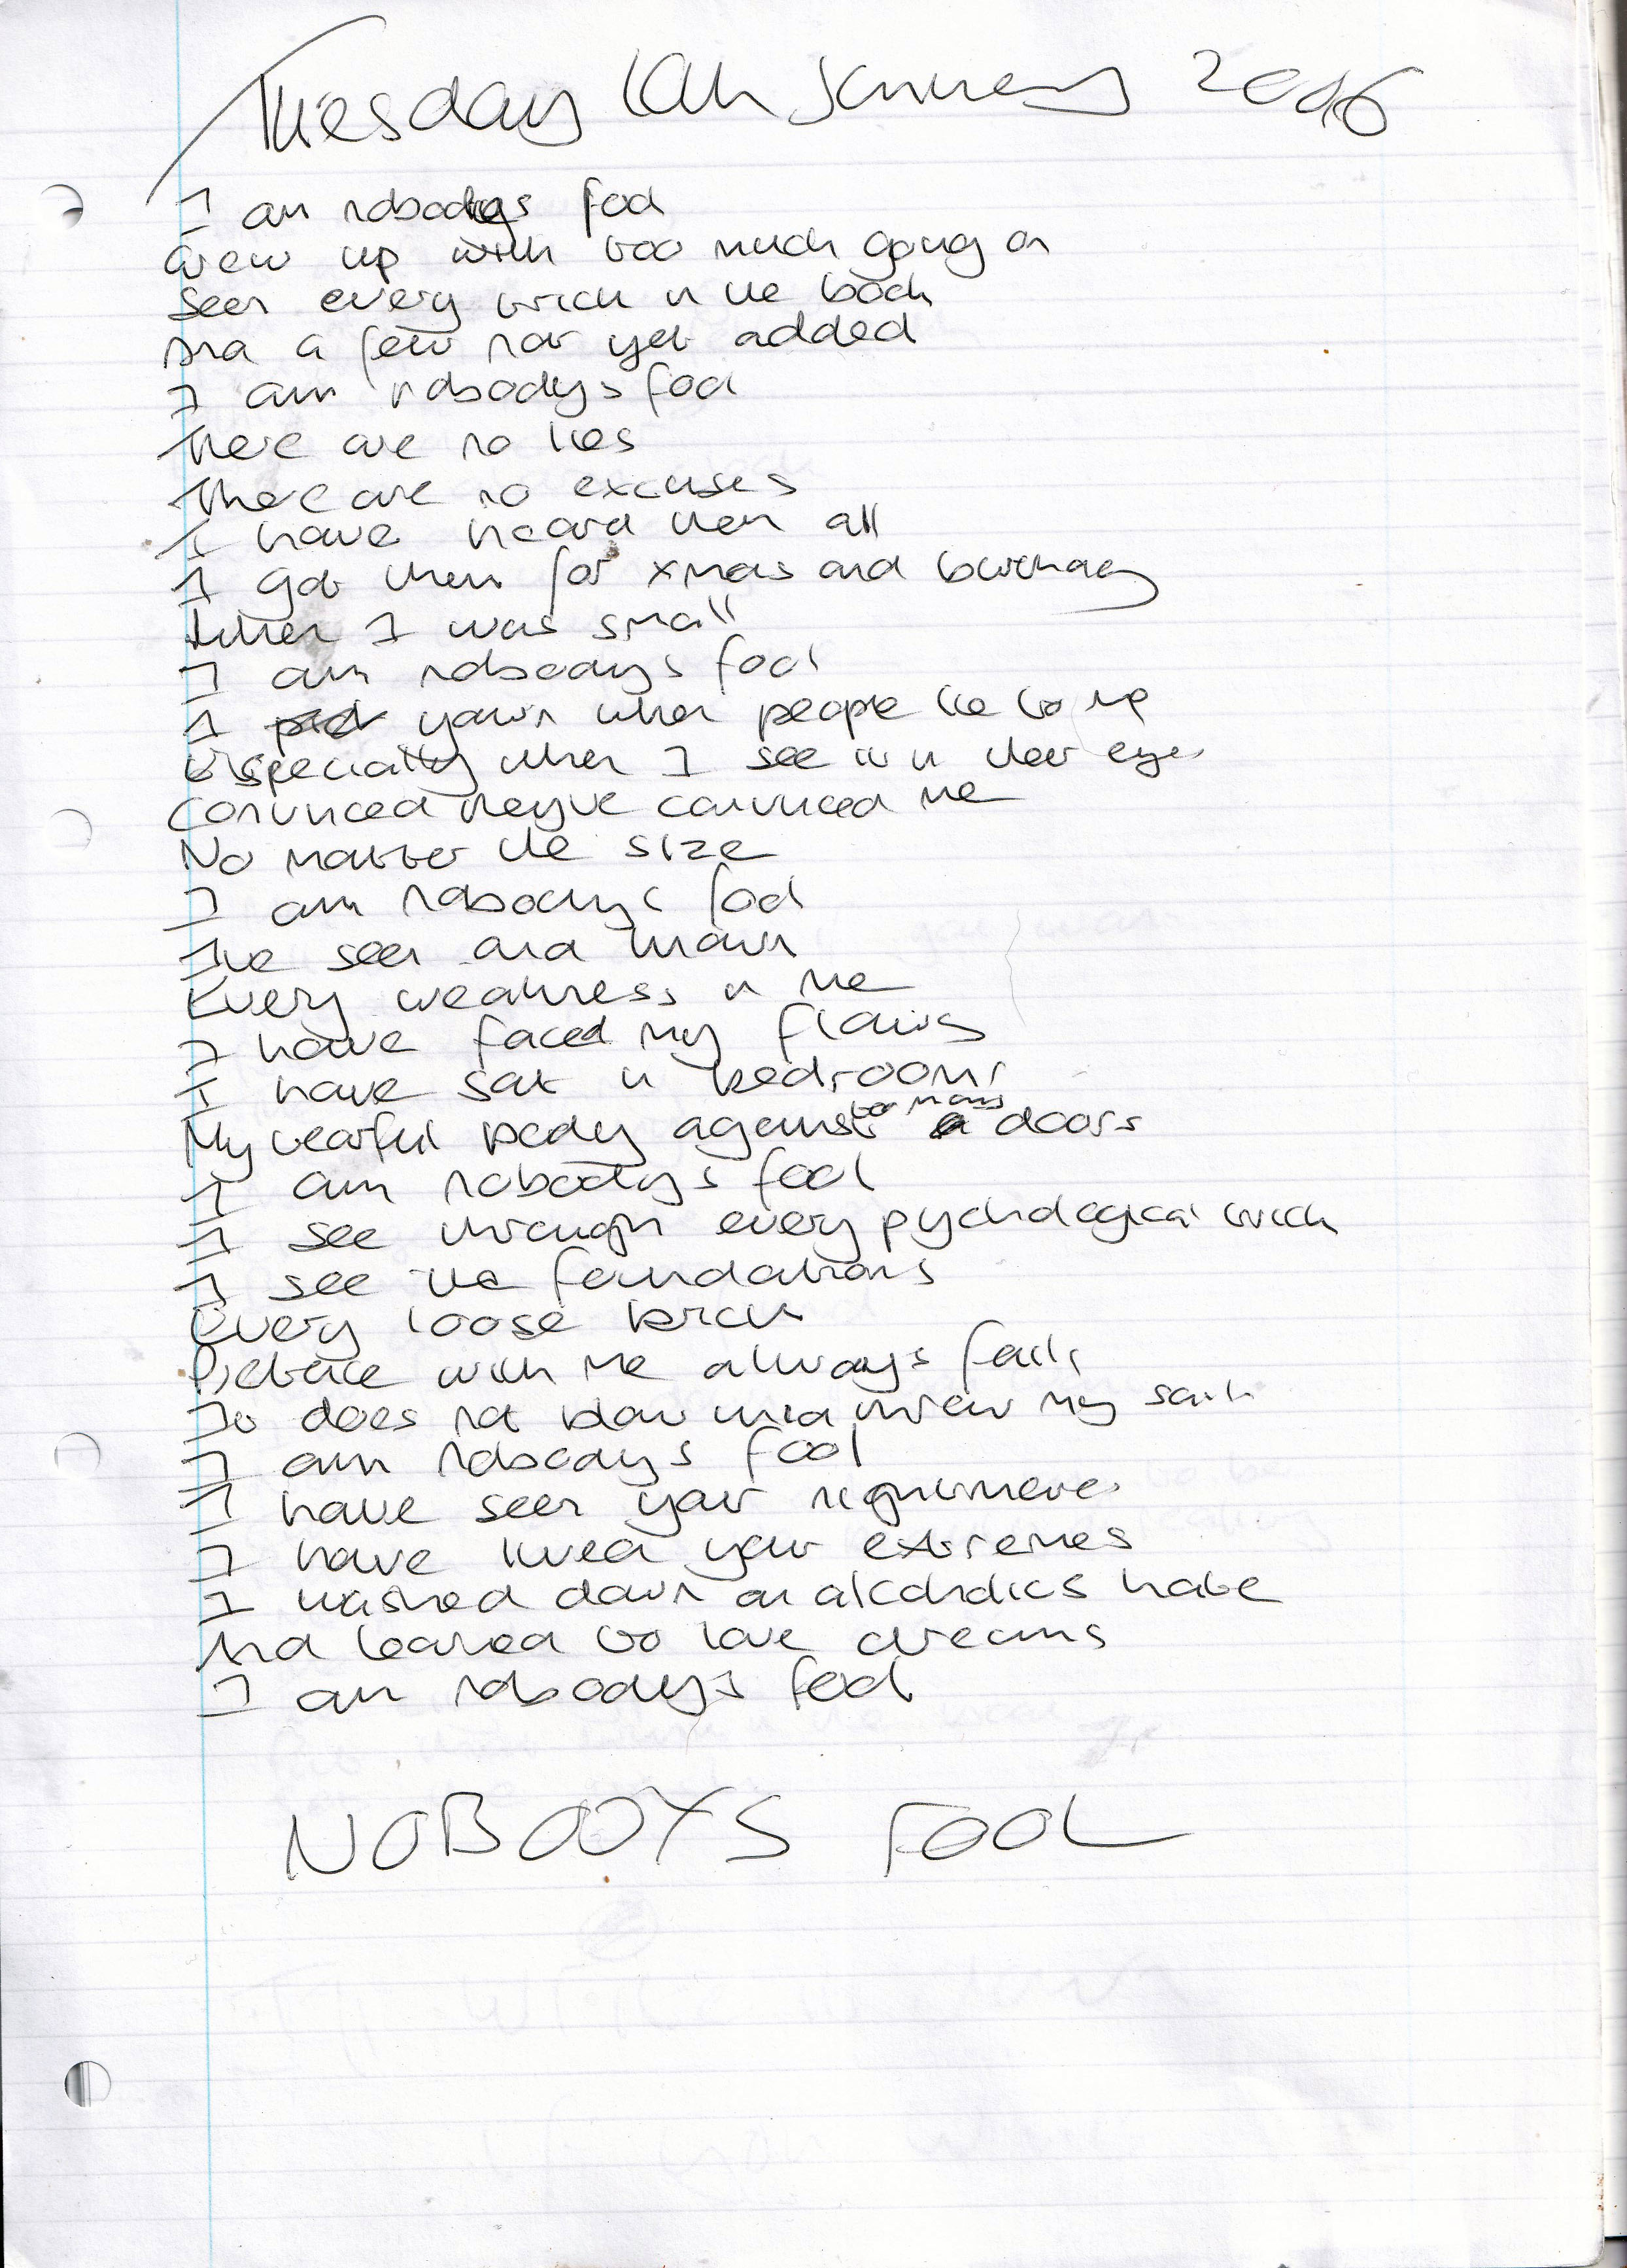 Tuesday 10th January 2016
I am nobodys fool
Grew up with too much going on
Seen every trick in the book
And a few not yet added
I am nobodys fool
There are no lies
There are no excuses
I have heard them all
I got them for xmas and birthday
When I was small
I am nobodys fool
I yawn when people lie to me
Especially when I see it in their eyes
Convinced theyve convinced me
No matter the size
I am nobodys fool
Ive seen and known
Every weakness in me
I have faced my flaws
I have sat in bedrooms
My tearful body against to many doors
I am nobodys fool
I see through every pychological trick
I see the foundations
Every loose brick
Pretence with me always fails
It does not blow wind through my sails
I am nobodys fool
I have seen your nightmares
I have lived your extremes
I washed down an alcoholics hate
And learned to love dreams
I am nobodys fool
NOBODYS FOOL